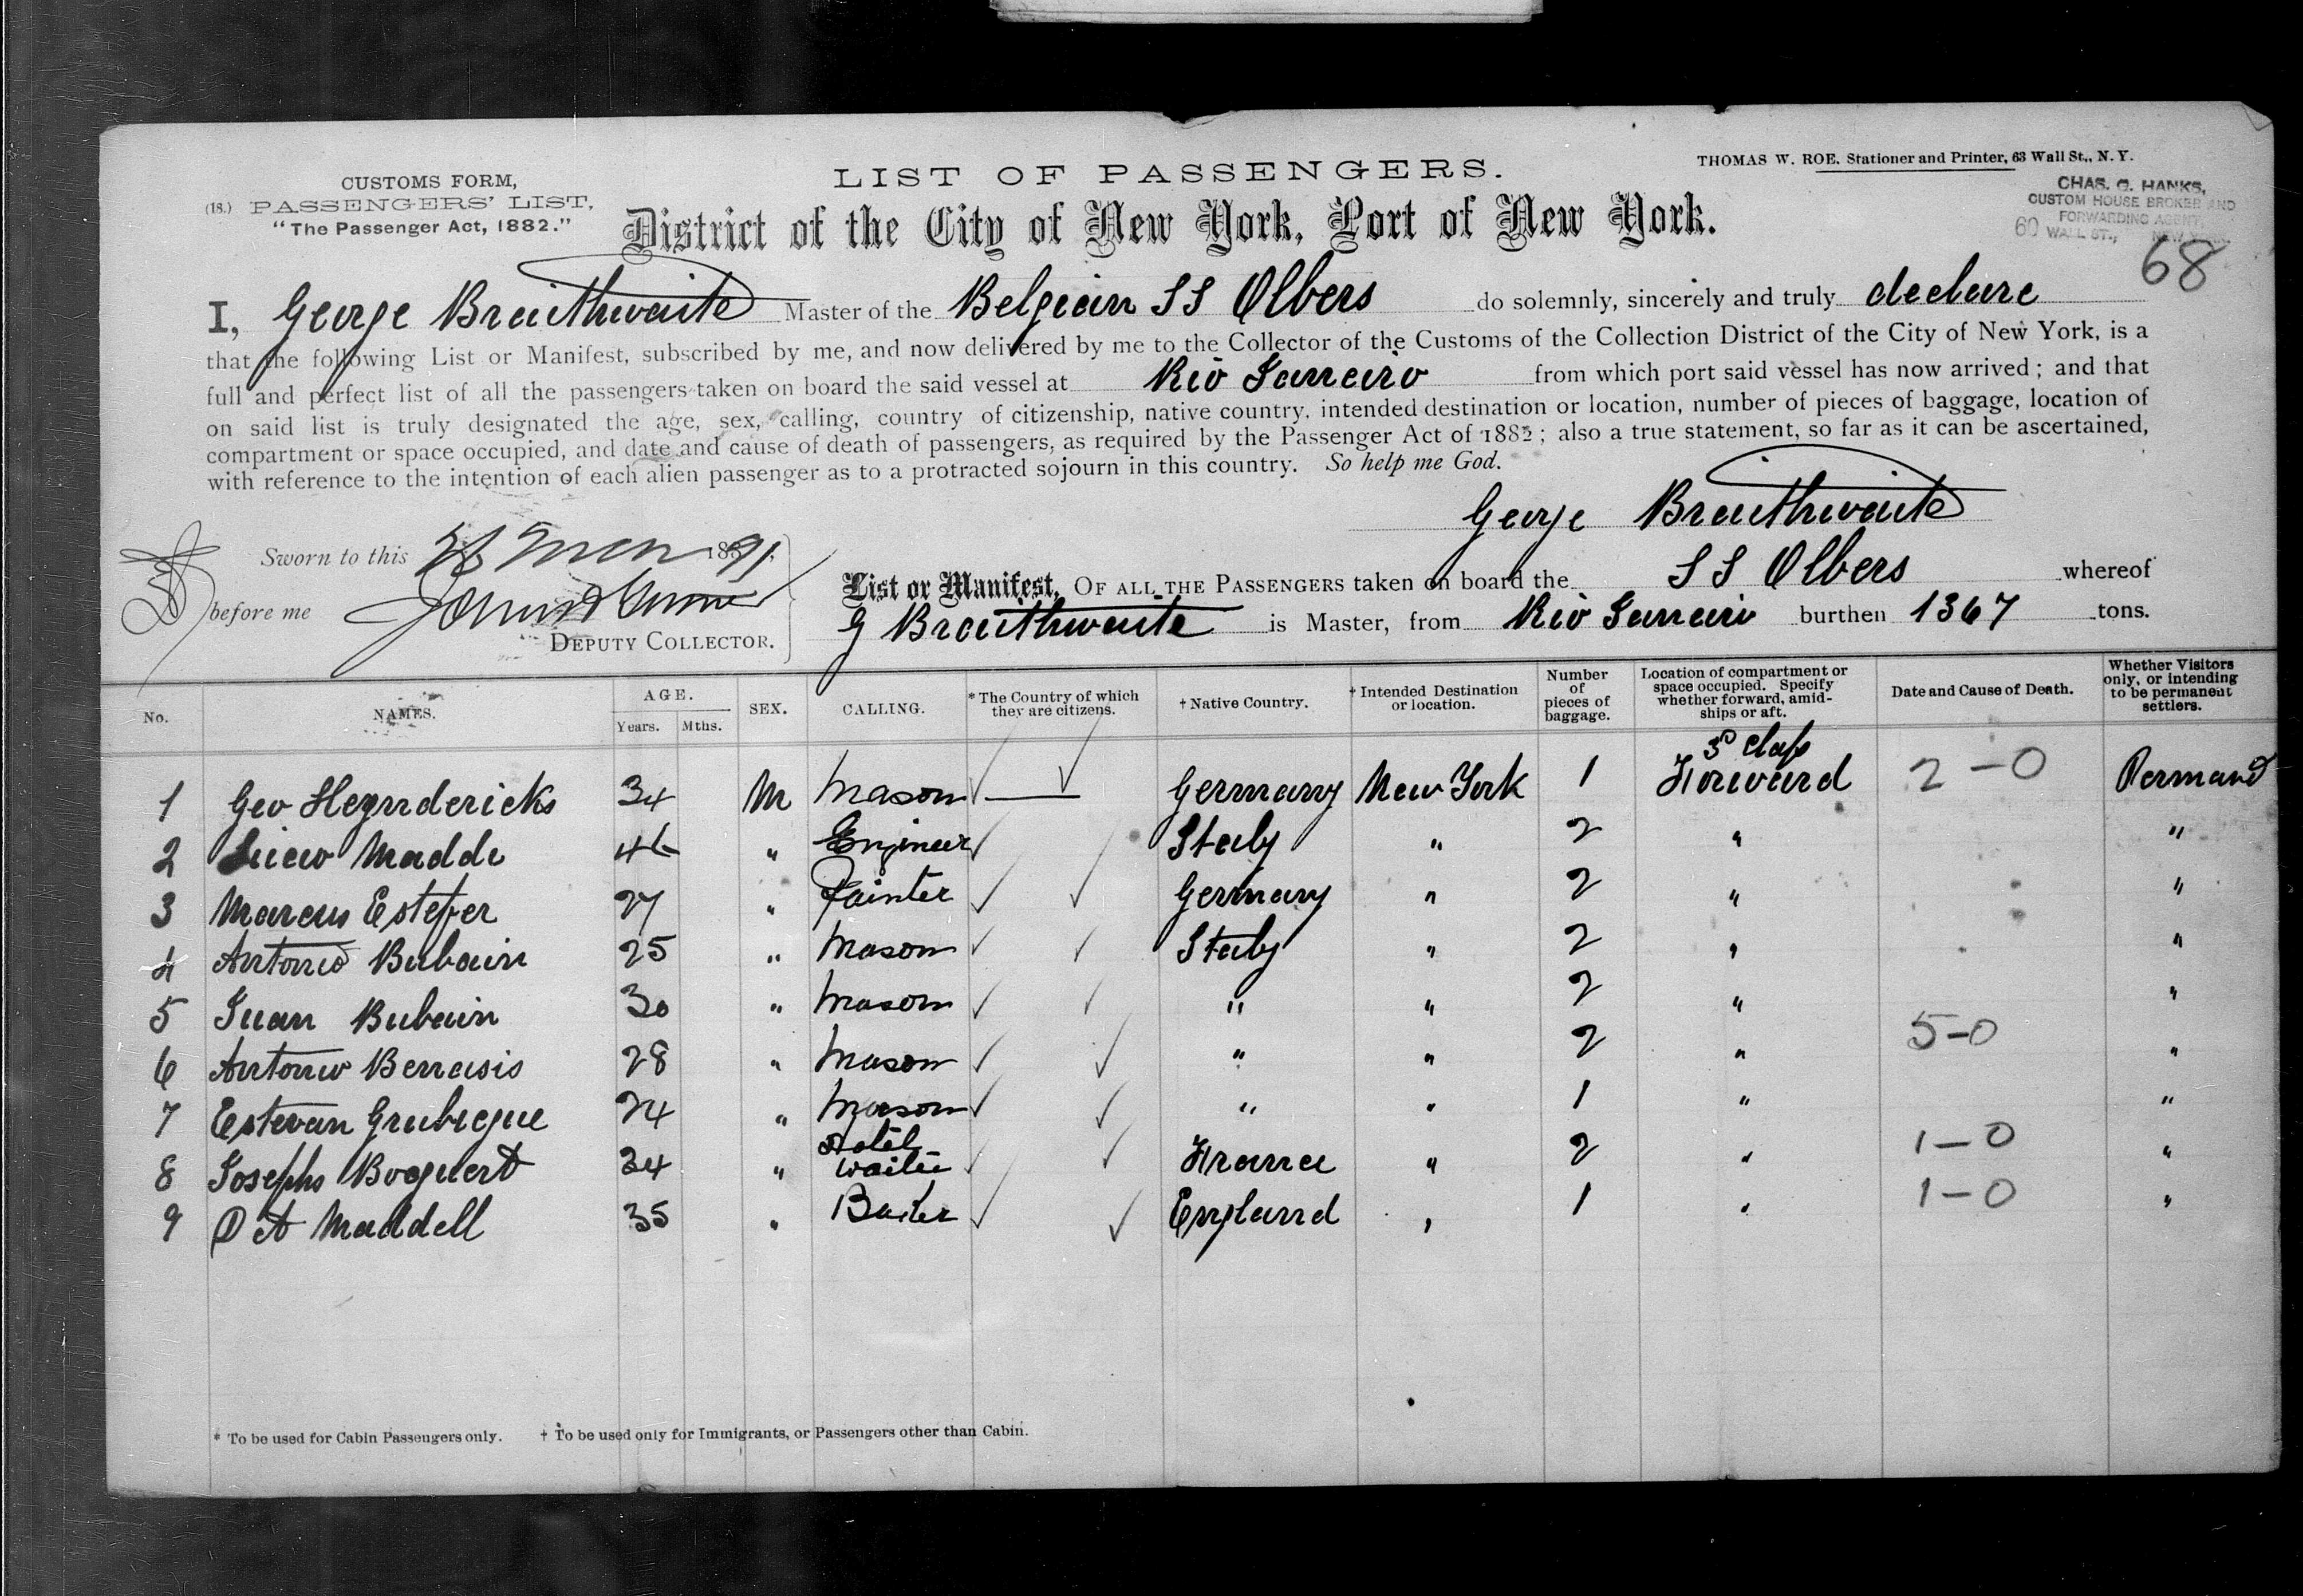 LIST OF PASSENGERS.
THOMAS W. ROE, Stationer and Printer, 63 Wall St., N. Y.
CUSTOMS FORM,
(18.) PASSENGERS' LIST,
"The Passenger Act, 1882."
CHAS. G. HANKS,
CUSTOM HOUSE BROKER AND
FORWARDING AGENT,
60 WALL ST., NEW YORK
68
District of the City of New York, Port of New York.
I, George Braithwaite Master of the Belgian SS Olbers do solemnly, sincerely and truly declare
that the following List or Manifest, subscribed by me, and now delivered by me to the Collector of the Customs of the Collection District of the City of New York, is a
full and perfect list of all the passengers taken on board the said vessel at Rio Janeiro from which port said vessel has now arrived; and that
on said list is truly designated the age, sex, calling, country of citizenship, native country, intended destination or location, number of pieces of baggage, location of
compartment or space occupied, and date and cause of death of passengers, as required by the Passenger Act of 1882; also a true statement, so far as it can be ascertained,
with reference to the intention of each alien passenger as to a protracted sojourn in this country. So help me God.
George Braithwaite
Sworn to this 1891
before me
DEPUTY COLLECTOR.
List or Manifest, OF ALL THE PASSENGERS taken on board the SS Olbers whereof
G Braithwaite is Master, from Rio Janeiro burthen 1367 tons.
No. NAMES. AGE. Years. Mths. SEX. CALLING. * The Country of which they are citizens. † Native Country. † Intended Destination or location. Number of pieces of baggage. Location of compartment or space occupied. Specify whether forward, amidships or aft. Date and Cause of Death. Whether Visitors only, or intending to be permanent settlers.
3d Class
1 Geo Heynderericks 34 M Mason — Germany New York 1 Forward 2-0 Permand
2 Madde 46 " Engineer Italy " 2 " "
3 Marcus Estefer 27 " Painter Germany " 2 " "
4 Antonio Bubain 25 " Mason Italy " 2 " "
5 Juan Bubain 30 " Mason " " 2 " "
6 Antonio Berrasis 28 " Mason " " 2 " 5-0 "
7 Estevan Grubieque 24 " Mason " " 1 " "
8 Josephs Boquert 24 " Hotel waiter France " 2 " 1-0 "
9 A Maddell 35 " Baker England " 1 " 1-0 "
* To be used for Cabin Passengers only. † To be used only for Immigrants, or Passengers other than Cabin.